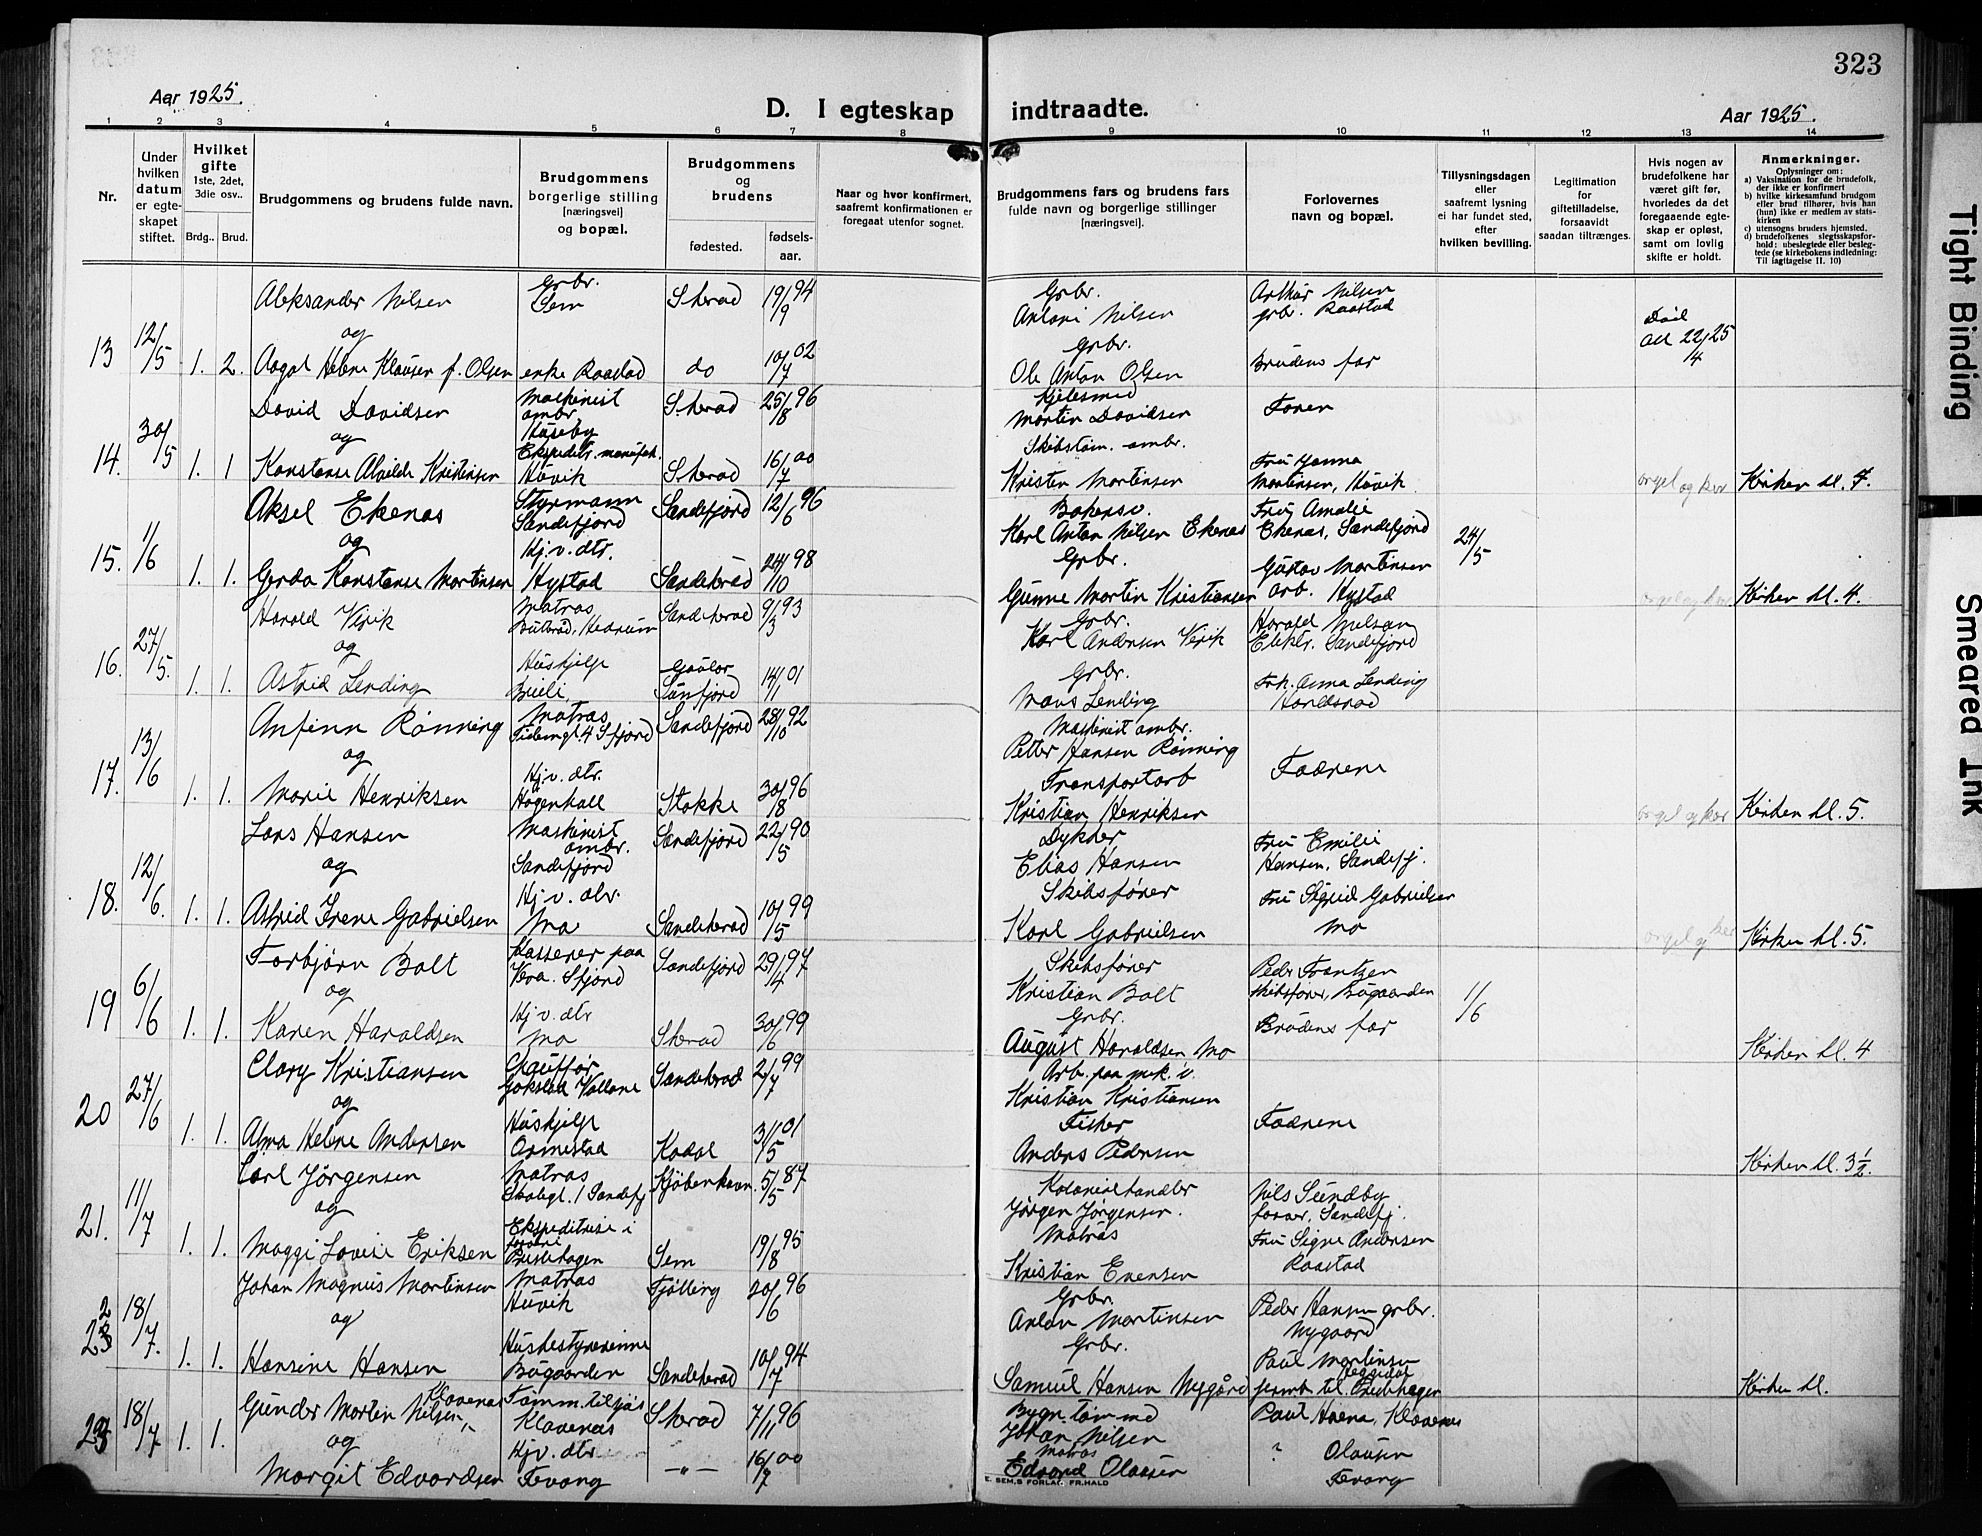 323
Aar 1925.
D. I egteskap indtraadte.
Aar 1925.
1 2 3 4 5 6 7 8 9 10 11 12 13 14
Nr.
Under hvilken datum er egteskapet stiftet.
Hvilket gifte 1ste, 2det, 3die osv..
Brdg.. Brud.
Brudgommens og brudens fulde navn.
Brudgommens borgerlige stilling [næringsvei] og bopæl.
Brudgommens og brudens
fødested. fødsels-aar.
Naar og hvor konfirmert, saafremt konfirmationen er foregaat utenfor sognet.
Brudgommens fars og brudens fars fulde navn og borgerlige stillinger [næringsvei].
Forlovernes navn og bopæl.
Tillysningsdagen eller saafremt lysning ei har fundet sted, efter hvilken bevilling.
Legitimation for giftetilladelse, forsaavidt saadan tiltrænges.
Hvis nogen av brudefolkene har været gift før, hvorledes da det foregaaende egteskap er opløst, samt om lovlig skifte er holdt.
Anmerkninger.
Oplysninger om:
a) Vaksination for de brudefolk, der ikke er konfirmert
b) hvilke kirkesamfund brudgom eller brud tilhører, hvis han (hun) ikke er medlem av statskirken
c) utensogns bruders hjemsted.
d) brudefolkenes slegtsskapsforhold: ubeslegtede eller beslegtede (se kirkebokens indledning: Til iagttagelse II. 10)
13 12/5 1. 2. Aleksander Nilsen Grbr. Sem S.herad 19/9 94
og
Aagot Helene Klausen f. Olsen enke Raastad do 10/7 02
Grbr. Antoni Nilsen Arthur Nilsen grbr. Raastad
Grbr. Ole Anton Olsen Brudens far
Død 22/4 25
14. 30/5 1. 1 David Davidsen Maskinist ombr. Huseby S.herad 25/8 96
og
Konstanse Alvilde Kristensen Ekspeditr. manufak. Huvik S.herad 16/7 00
Kjelesmed Martin Davidsen Faren
Skibstøm. ombr. Kristen Mortensen Fru Hanna Mortensen, Huvik
orgel og kor Kirken kl. 7.
15. 1/6 1. 1. Aksel Ekenæs Styrmann Sandefjord Sandefjord 12/6 96
og
Gerda Konstanse Martinsen Hj. v. dtr. Hystad Sandeherad 24/10 98
Bakersv. Karl Anton Nilsen Ekenæs Fru Amalie Ekenæs, Sandefjord 24/5
Grbr. Gunne Martin Kristiansen Gustav Martinsen arb. Hystad
orgel og kor Kirken kl. 4.
16. 27/5. 1. 1. Harald Virik Matros Sandeherad 9/3 93
og
Astrid Lending Hushjelp Gaular Sunfjord 14/1 01
Grbr. Karl Andersen Virik Harald Nilsen Elektr. Sandefjord
Grbr. Mons Lending Frk. Anna Lending
17. 13/6 1. 1. Anfinn Rønning Matros Sandefjord 28/10 92
og
Marie Henriksen Hj. v. dtr. Haugenhall Stokke 30/8 96
Maskinist ombr. Petter Hansen Rønning
Transportarb Kristian Henriksen Fædrene
orgel og kor Kirken kl. 5.
18. 12/6. 1. 1. Lars Hansen Maskinist ombr. Sandefjord Sandefjord 22/5 90
og
Astrid Irene Gabrielsen Hj. v. dtr. Mo Sandeherad 10/5 99
Dykker Elias Hansen Fru Emilie Hansen, Sandefj.
Skibsfører Karl Gabrielsen Fru Sigrid Gabrielsen Mo
orgel og kor Kirken kl. 5.
19 6/6 1. 1. Torbjørn Bolt Kasserer paa Vera. Sfjord Sandefjord 29/4 97
og
Karen Haraldsen Hj v. dtr Mo S.herad 30/6 99
Skibsfører Kristian Bolt Peder Frantzen skibsfører, Bugaarden 1/6
Grbr. August Haraldsen Mo Brudens far
Kirken kl. 4
20 27/6 1. 1. Clary Kristiansen Chauffør Gokstad Sandeherad 2/7 99
og
Alma Helene Andersen Hushjelp Ormestad Kodal 31/5 01
Arb. paa mek. v. Kristian Kristiansen
Fisker Anders Pedersen Fædrene
Kirken kl. 3 1/2.
21. 11/7 1. 1. Carl Jørgensen Matros Skolegt. 1 Sandefj Kjøbenhavn. 5/5 87
og
Maggi Lovise Eriksen Ekspeditrise i Prestehagen Sem 19/8 95
Kolonialhandler Jørgen Jørgensen. Nils Sundby Sandefj.
Matros Kristian Evensen Fru Signe Andersen Raastad
22 18/7. 1. 1. Johan Magnus Martinsen Matros Huvik Tjølling 20/6 96
og
Hansine Hansen Husbestyrerinne Bugaarden Sandeherad 10/7 94
Grbr. Anton Martinsen Peder Hansen grbr. Nygaard
Grbr. Samuel Hansen Nygård Paul Martinsen
Kirken kl.
23 18/7 1. 1. Gunder Martin Nilsen Klavenæs Tømm. til sjøs Klavenæs S.herad 7/11 96
og
Margit Edvardsen Hjv. dtr Tevang —„— 16/7 00
Bygn. tømmed Johan Nilsen Paul Klavenæs
Matros Edvard Olausen ? Olausen Tevang
E. SEM.S FORLAG. FR.HALD
Tight Binding
Smeared Ink